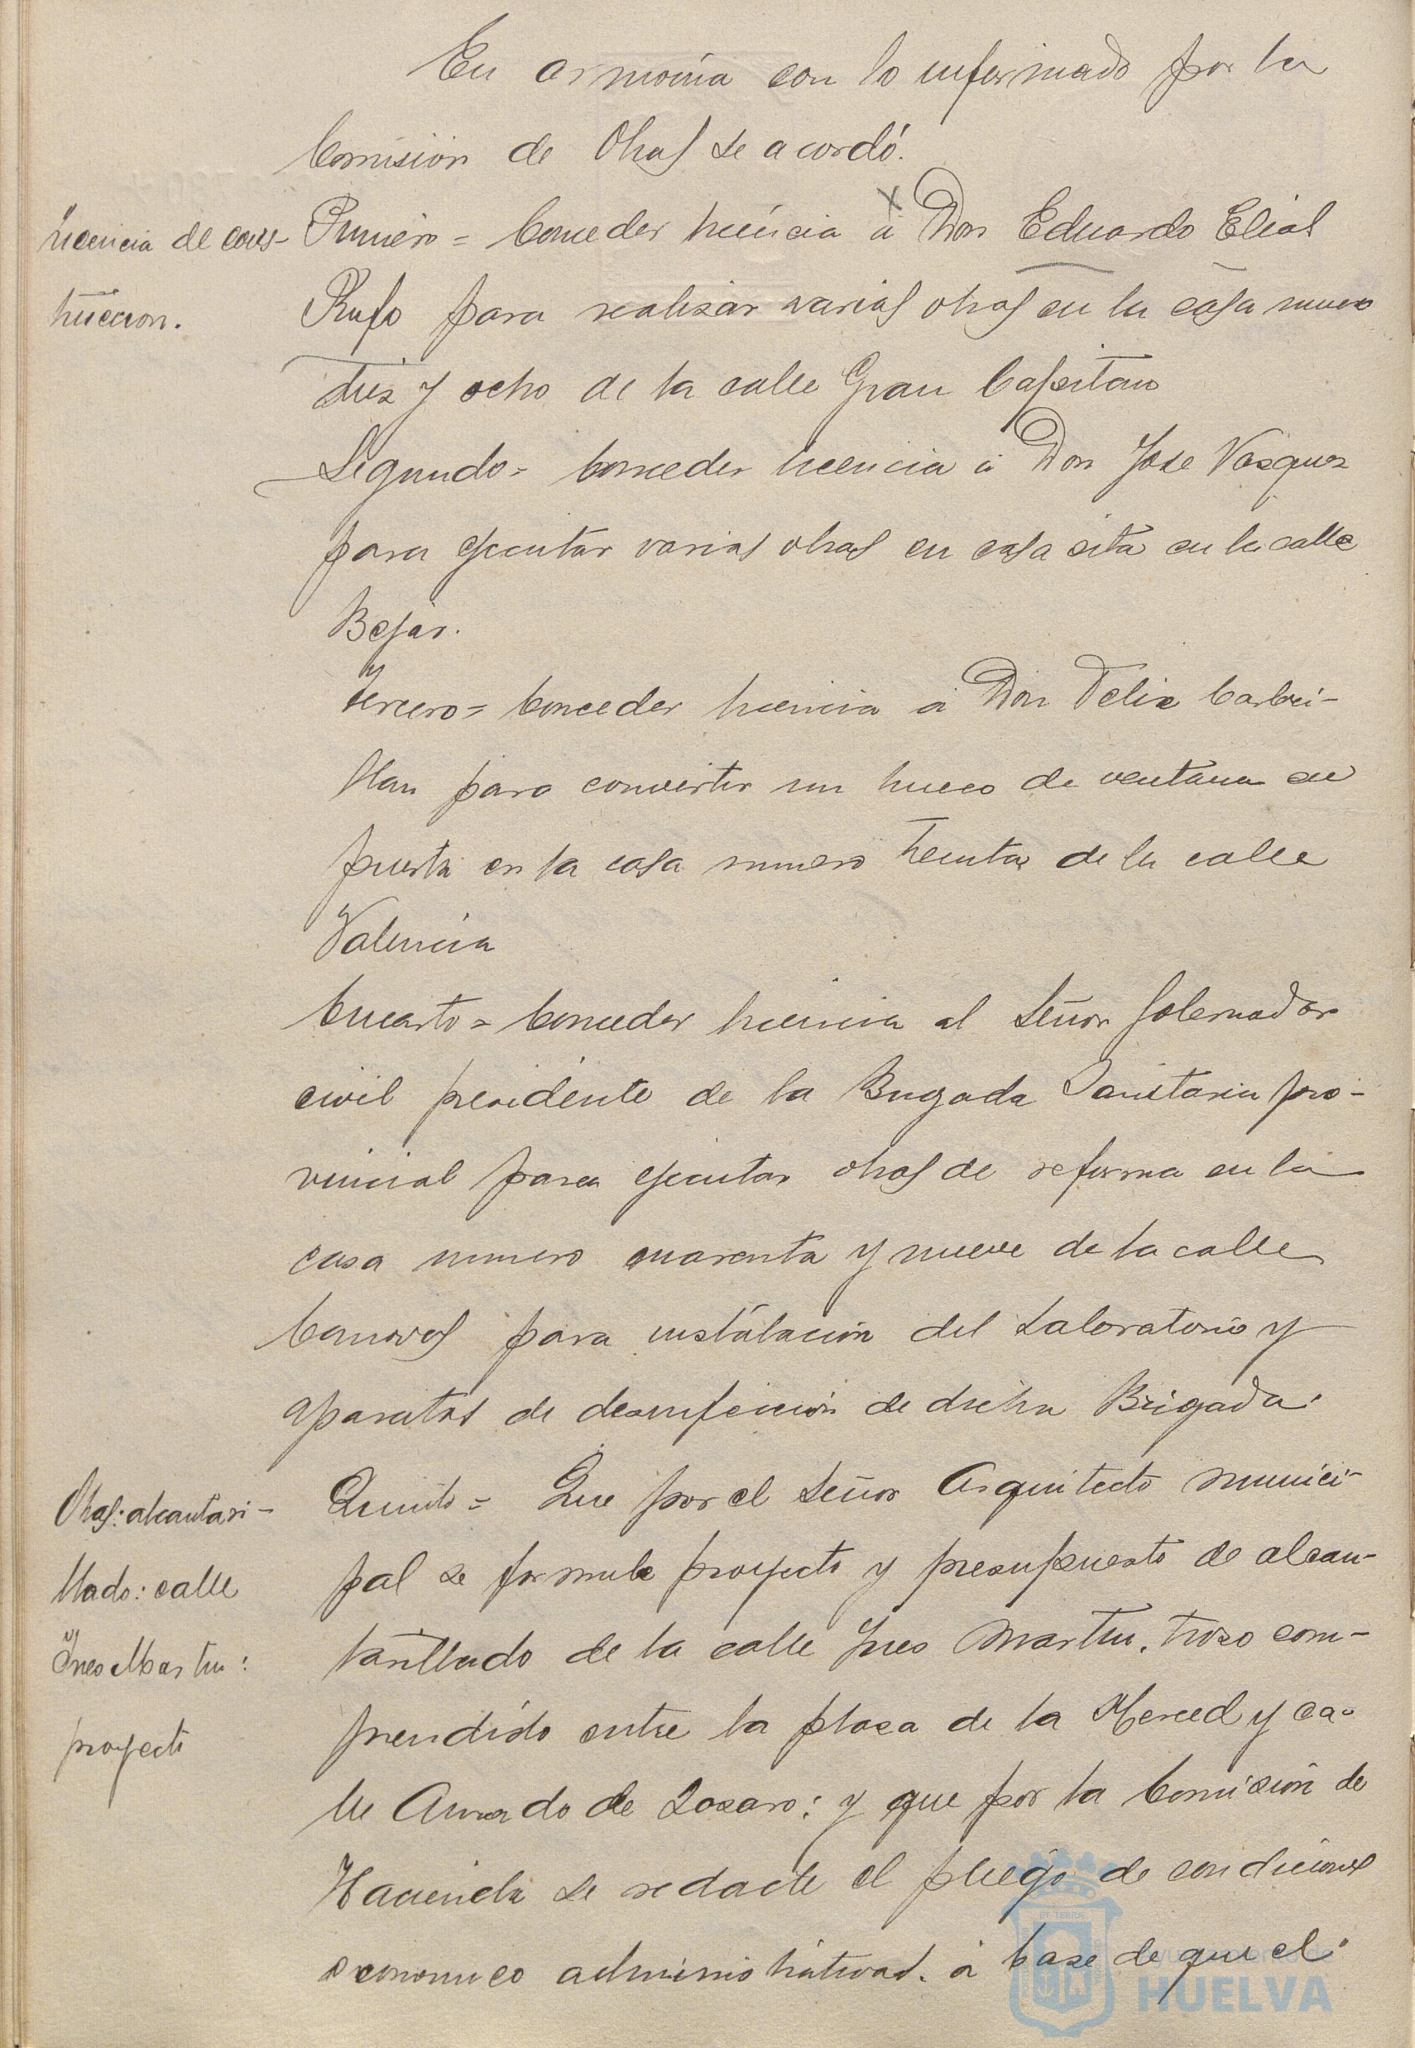 En armonia con lo informado por la
Comisión de Obras se acordó.
Licencia de cons-
trucción.
Primero = Conceder licencia á Don Eduardo Elias
Rufo para realizar varias obras en la casa numero
diez y ocho de la calle Gran Capitan
Segundo = Conceder licencia á Don Jose Vasquez
para ejecutar varias obras en casa sita en la calle
Bejar.
Tercero = Conceder licencia á Don Felix
para convertir un hueco de ventana en
puerta en la casa numero treinta de la calle
Valencia
Cuarto = Conceder licencia al Señor Gobernador
civil presidente de la Brigada Sanitaria pro-
vincial para ejecutar obras de reforma en la
casa numero cuarenta y nueve de la calle
Canovas para instalación del Laboratorio y
aparatos de desinfección de dicha Brigada.
Obras: alcantari-
llado: calle
Ines Martin:
proyecto
Quinto = Que por el Señor Arquitecto munici-
pal se formule proyecto y presupuesto de alcan-
tarillado de la calle Ines Martin, trozo com-
prendido entre la plaza de la Merced y ca-
lle de : y que por la Comisión de
Hacienda se redacte el pliego de condiciones
economico administrativas. á base de que el
ET TERRAE
HUELVA